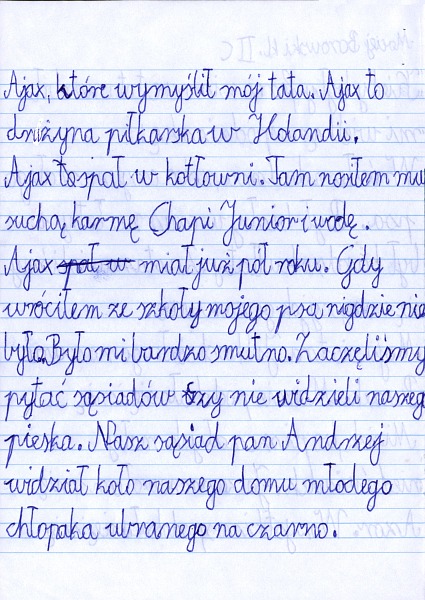 Ajax, które wymyślił mój tata. Ajax to
drużyna piłkarska w Holandii.
Ajax spał w kotłowni. Tam nosiłem mu
suchą karmę Chapi Junior i wodę.
Ajax spał w miał już pół roku. Gdy
wróciłem ze szkoły mojego psa nigdzie nie
było. Było mi bardzo smutno. Zaczęliśmy
pytać sąsiadów czy nie widzieli naszeg
pieska. Nasz sąsiad pan Andrzej
widział koło naszego domu młodego
chłopaka ubranego na czarno.